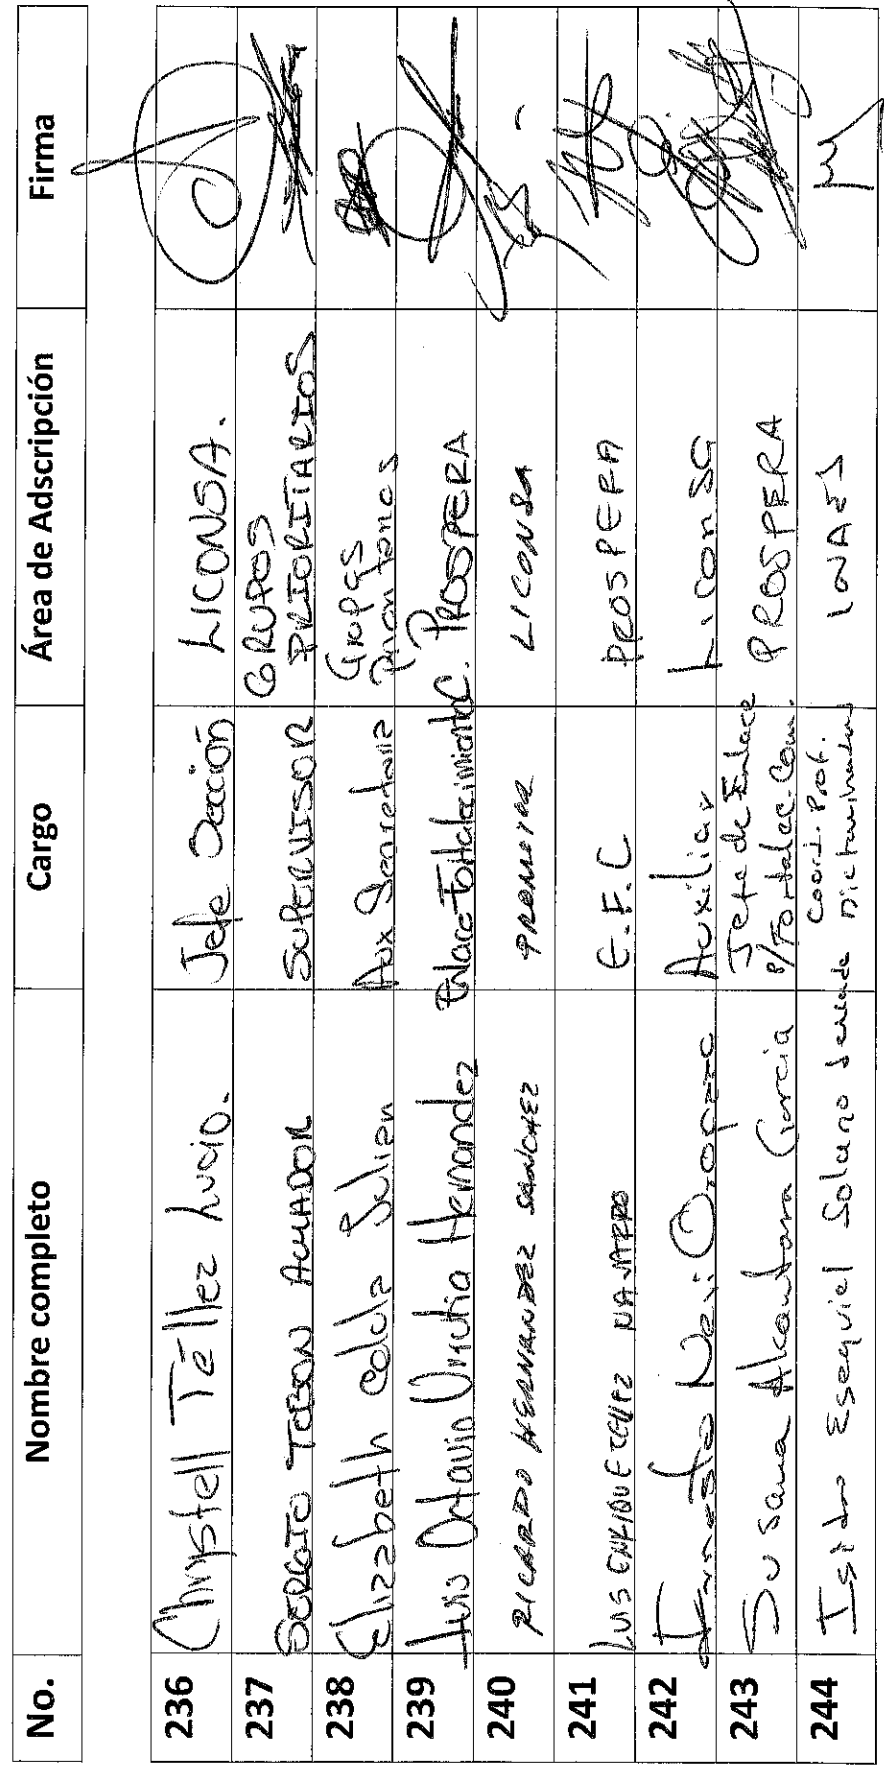 No. Nombre completo Cargo Área de Adscripción Firma
236 Chrystell Téllez Lucio. Jefe Sección LICONSA.
237 SERGIO TOBON AMADOR SUPERVISOR GRUPOS PRIORITARIOS
238 Elizabeth Julian Aux Secretaria Grupos
239 Luis Octavio Urrutia Hernandez Enlace Fortalecimiento C. PROSPERA
240 RICARDO HERNANDEZ SANCHEZ PROMOTOR LICONSA
241 LUIS ENRIQUE TELLEZ NAVARRO E.F.C PROSPERA
242 Ernesto Neri Oropeza Auxiliar Liconsa
243 Susana Alcantara Garcia Jefe de Enlace p/Fortalec. Com. PROSPERA
244 Isidro Esequiel Solano Coord. Prof. INAES